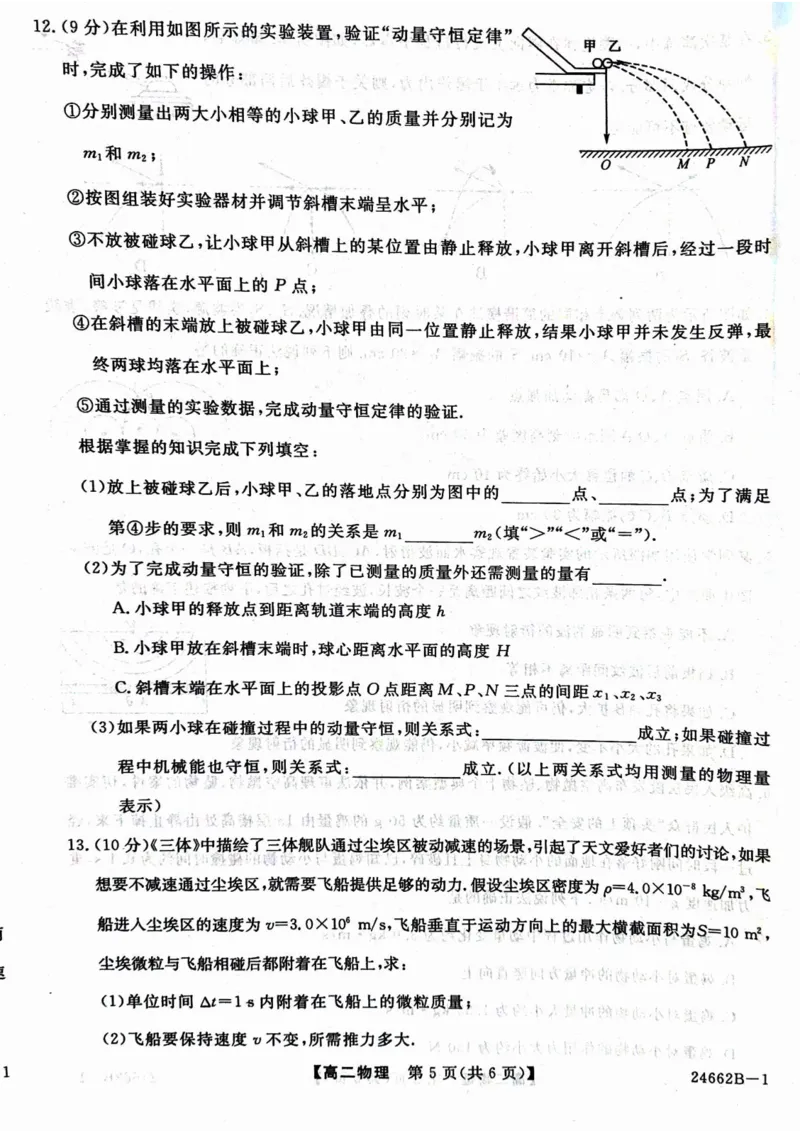 12.(9 分)在利用如图所示的实验装置,验证“动量守恒定律”
时,完成了如下的操作:
①分别测量出两大小相等的小球甲、乙的质量并分别记为
m₁和 m₂;
甲 乙
O M P N
②按图组装好实验器材并调节斜槽末端呈水平;
③不放被碰球乙,让小球甲从斜槽上的某位置由静止释放,小球甲离开斜槽后,经过一段时
间小球落在水平面上的 P 点;
④在斜槽的末端放上被碰球乙,小球甲由同一位置静止释放,结果小球甲并未发生反弹,最
终两球均落在水平面上;
⑤通过测量的实验数据,完成动量守恒定律的验证.
根据掌握的知识完成下列填空:
(1)放上被碰球乙后,小球甲、乙的落地点分别为图中的________点、________点;为了满足
第④步的要求,则 m₁和 m₂的关系是 m₁________m₂(填“>”“<”或“=”).
(2)为了完成动量守恒的验证,除了已测量的质量外还需测量的量有________.
A. 小球甲的释放点到距离轨道末端的高度 h
B. 小球甲放在斜槽末端时,球心距离水平面的高度 H
C. 斜槽末端在水平面上的投影点 O 点距离 M、P、N 三点的间距 x₁、x₂、x₃
(3)如果两小球在碰撞过程中的动量守恒,则关系式:________________成立;如果碰撞过
程中机械能也守恒,则关系式:____________成立.(以上两关系式均用测量的物理量
表示)
13.(10 分)《三体》中描绘了三体舰队通过尘埃区被动减速的场景,引起了天文爱好者们的讨论,如果
想要不减速通过尘埃区,就需要飞船提供足够的动力.假设尘埃区密度为 ρ=4.0×10⁻⁸ kg/m³,飞
船进入尘埃区的速度为 v=3.0×10⁶ m/s,飞船垂直于运动方向上的最大横截面积为S=10 m²,
尘埃微粒与飞船相碰后都附着在飞船上,求:
(1)单位时间 Δt=1 s 内附着在飞船上的微粒质量;
(2)飞船要保持速度 v 不变,所需推力多大.
【高二物理 第 5 页(共 6 页)】
24662B-1